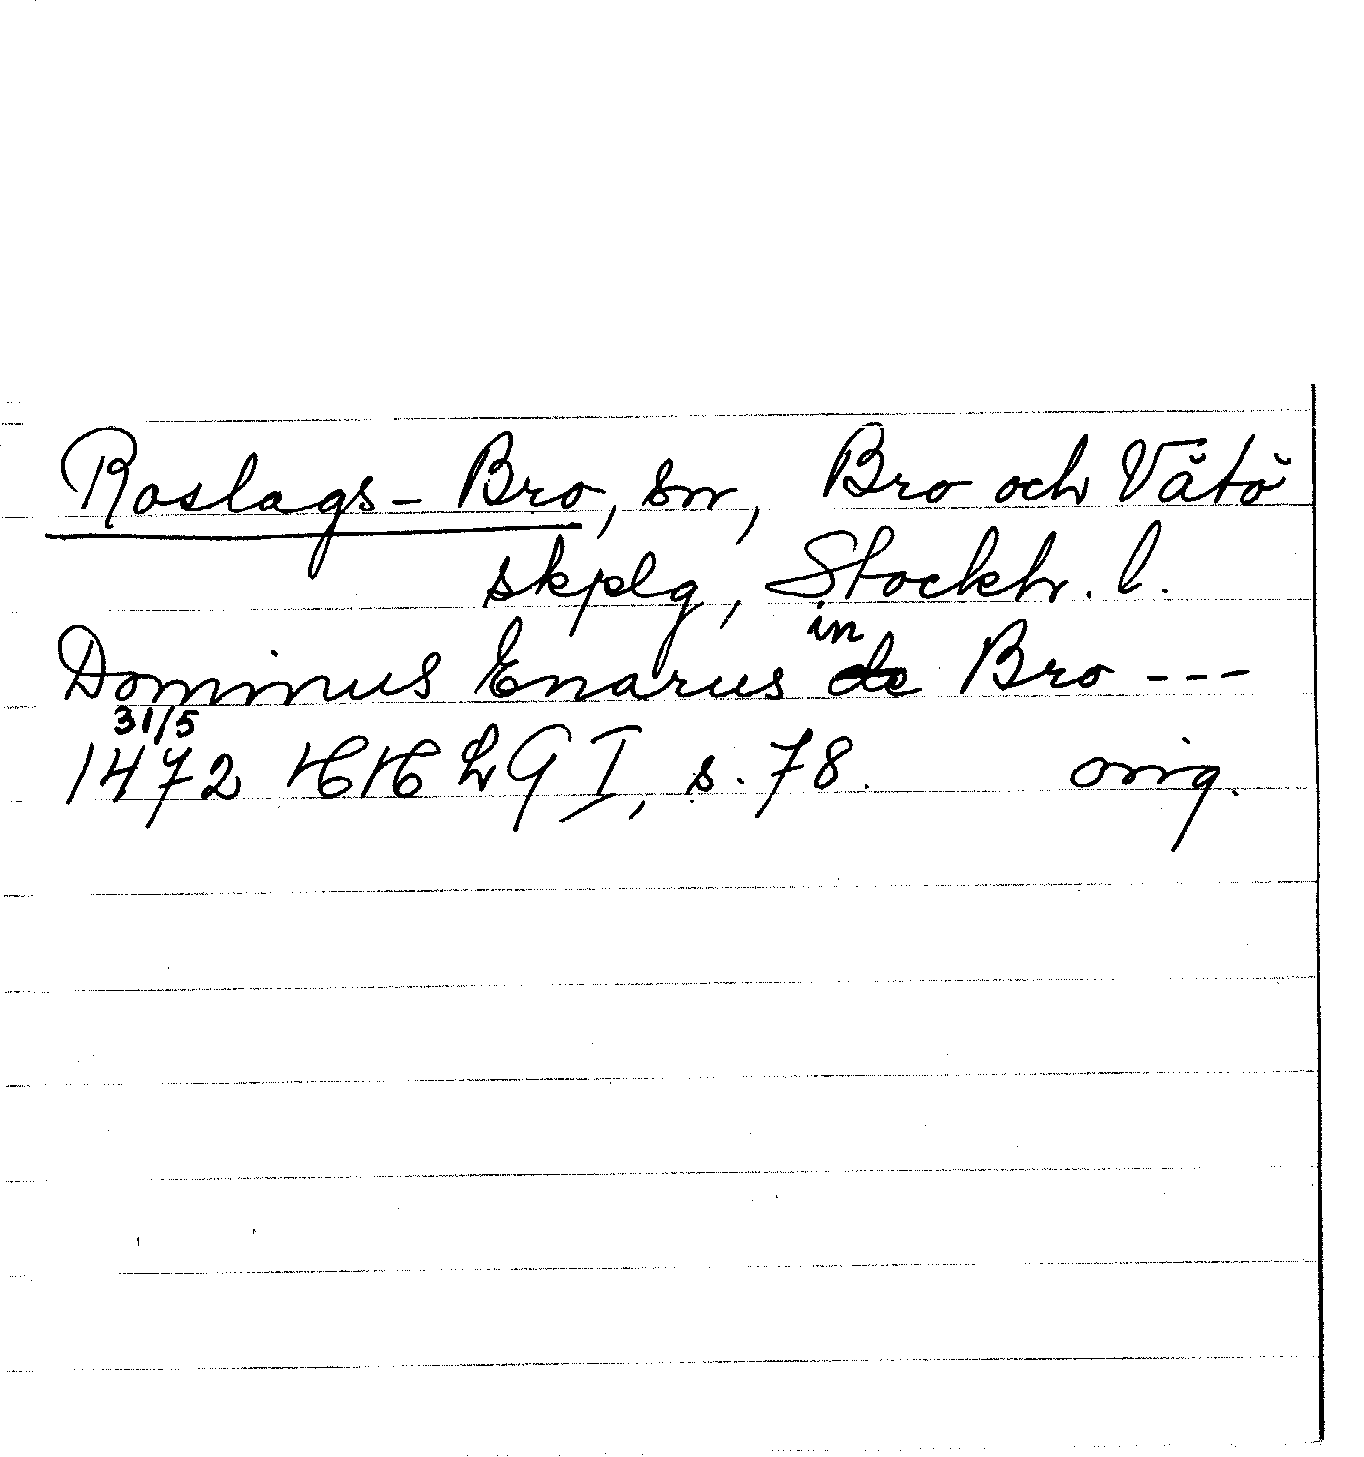 Roslags-Bro, sn, Bro och Vätö
skplg, Stockh. l.
in
Dominus Enarus de Bro ---
31/5
1472 HH LG I, s. 78. orig.